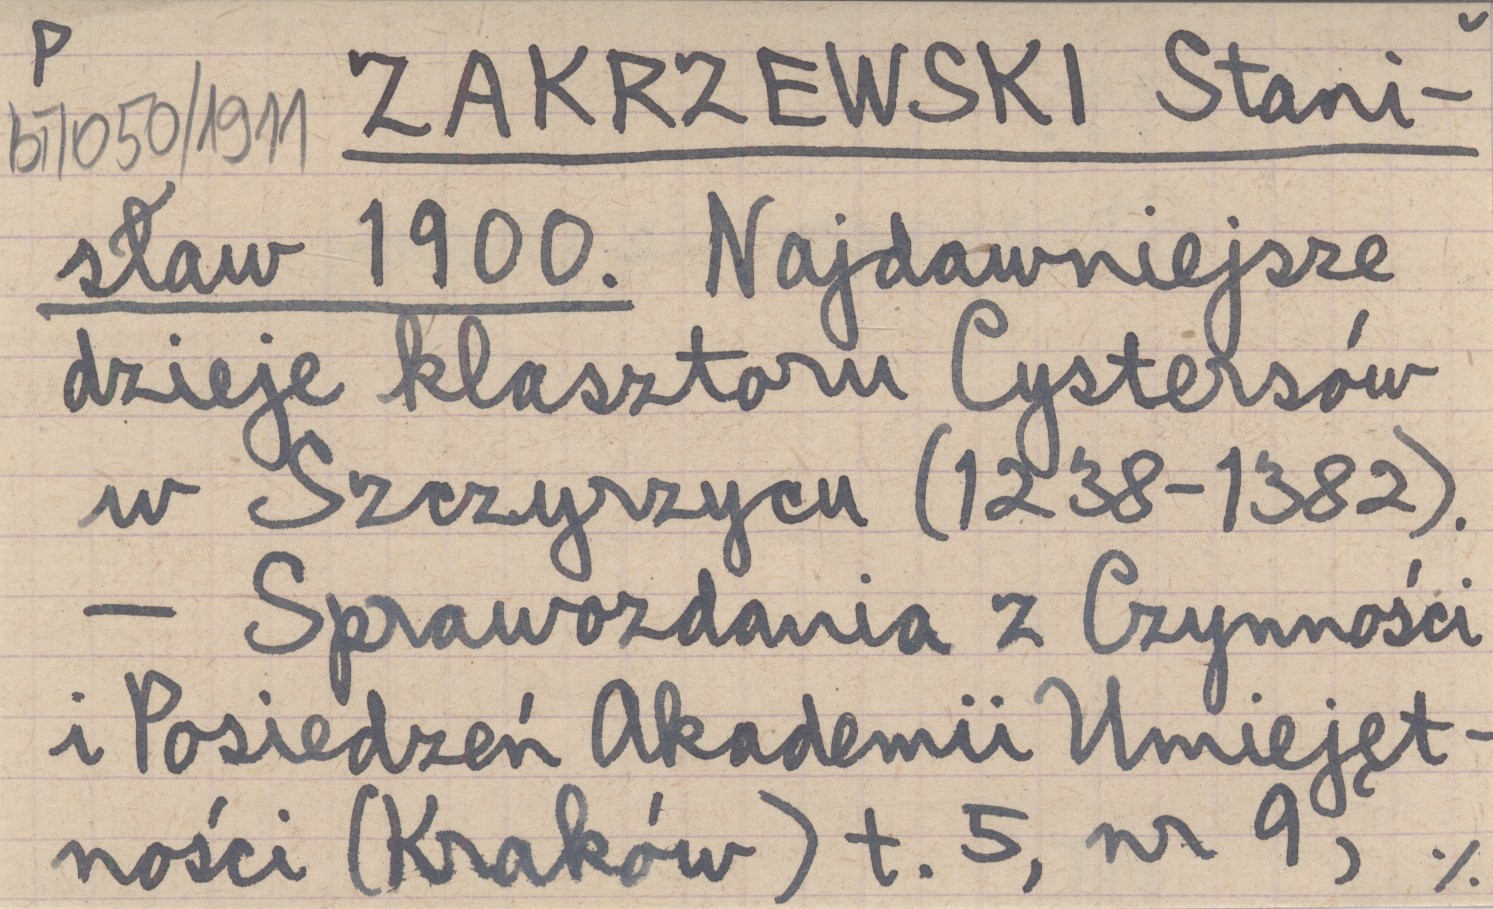 P
ZAKRZEWSKI Stani-
bT1050/1911
sław 1900. Najdawniejsze
dzieje klasztoru Cystersów
w Szczyrzycu (1238-1382).
— Sprawozdania z Czynności
i Posiedzeń Akademii Umiejęt-
ności (Kraków) t. 5, nr 9, ./.